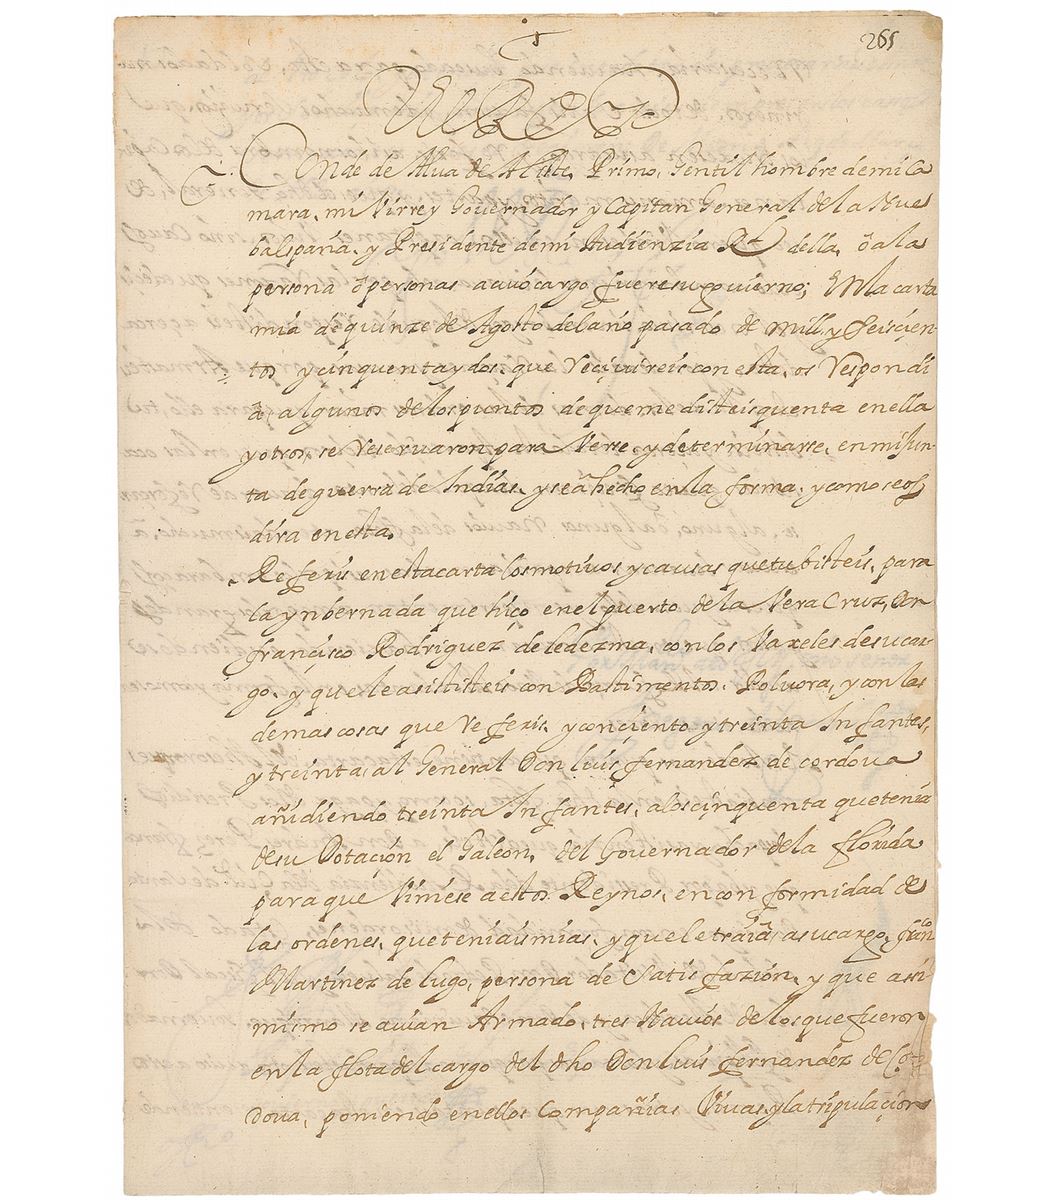 265
El Rey
Conde de Alva de Aliste, Primo, Gentil hombre de mi Ca
mara, mi Virrey Governador y Capitan General de la Nue
ba españa, y Presidente de mi Audienzia Rl. della, ó a la
persona ó personas a cuío cargo fuere su govierno; En la carta
mia de quinze de Agosto del año pasado de mill y seiscien-
tos y cinquenta y dos, que reciuireis con esta, os respondi
á algunos de los puntos de que me disteis quenta en ella
y otros, se reseruaron para verse y determinarse, en mi Jun-
ta de guerra de Indias, y se á hecho en la forma, y como se os
dira en esta.
Referis en esta carta los motivos y causas que tubisteis, para
la ynbernada que hiço en el puerto de la Vera Cruz, Don
francisco Rodriguez de ledezma, con los Vaxeles de su car-
go, y que le asististeis con Bastimentos, Poluora, y con las
demas cosas que referis, y con ciento y treinta Infantes,
y treinta, al General Don luis fernandez de cordoua
añidiendo treinta Infantes, a los cinquenta que tenia
de su Dotación el Galeon, del Governador de la florida
para que viniese a estos Reynos, en conformidad de
las ordenes, que teniais mias, y que le traiá, a su cargo, franco
Martinez de lugo, persona de Satisfazión, y que assi-
mismo se auian Armado, tres Nauíos de los que fueron
en la flota del cargo del dho Don luis fernandez de Cor-
doua, poniendo en ellos Compañias Viuas, y la tripulaçion